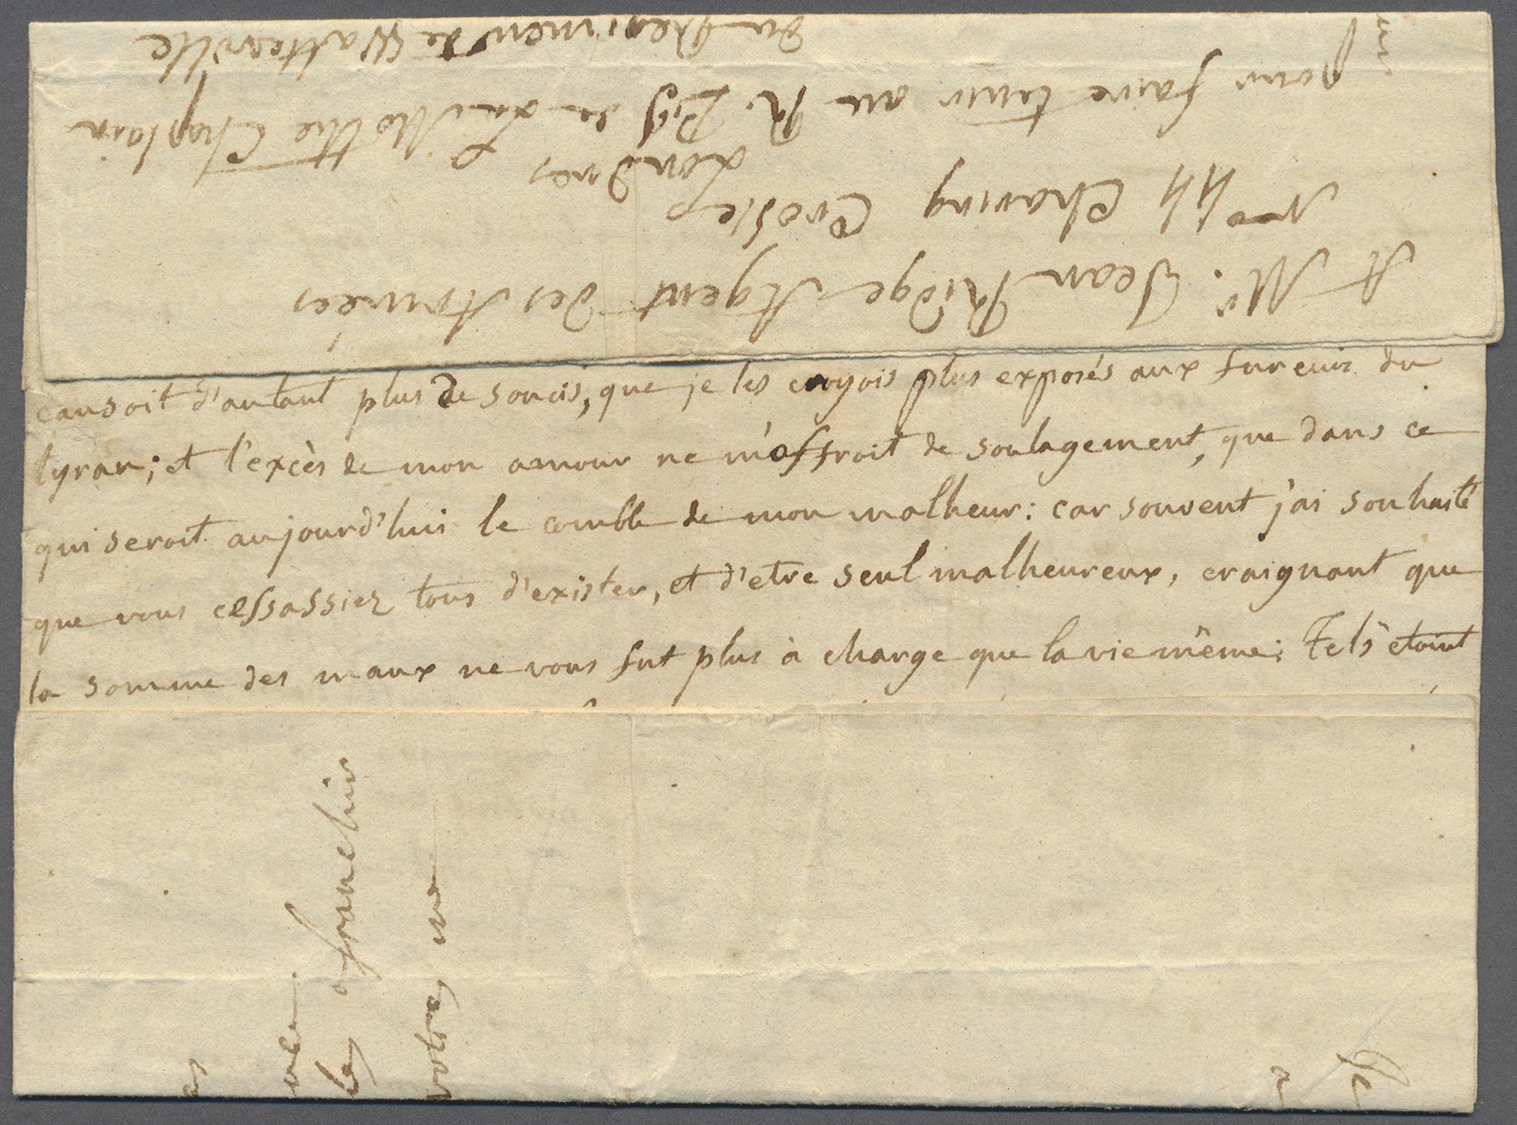 A Mr. Jean Ridge Agent des Armées
No 44 Charing Crosse
Londres
pour faire tenir au R. de La Mothe Chaplain
du Regiment de Watteville
causoit d'autant plus de soucis, que je les croyois plus exposés aux fureurs du
tyran; et l'excès de mon amour ne m'offroit de soulagement, que dans ce
qui seroit aujourd'hui le comble de mon malheur: car souvent j'ai souhaité
que vous cessassiez tous d'exister, et d'etre seul malheureux, craignant que
la somme des maux ne vous fut plus à charge que la vie même: Tels etoint
votre